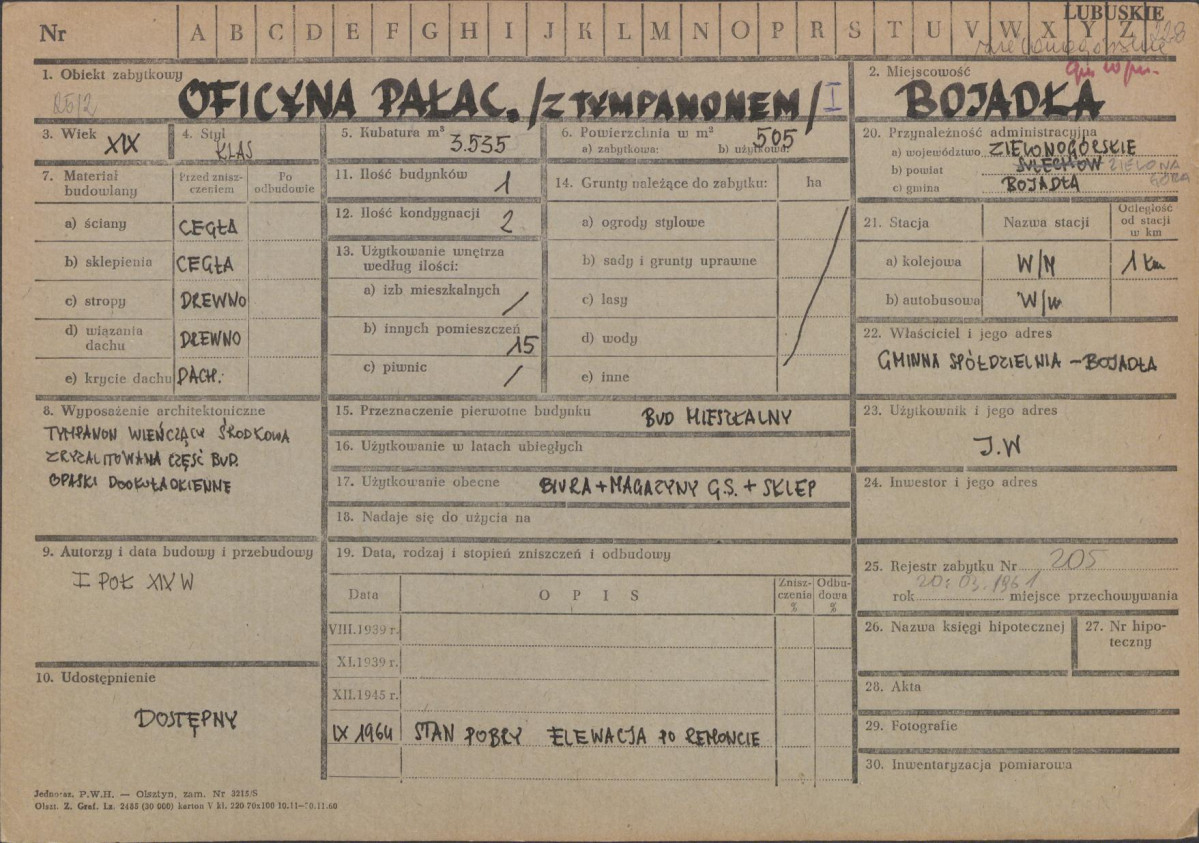 LUBUSKIE
Nr A B C D E F G H I J K L M N O P R S T U V W X Y Z 228
zielonogórskie
1. Obiekt zabytkowy
OFICYNA PAŁAC. /Z TYMPANONEM/ I
2. Miejscowość
BOJADŁA
3. Wiek
XIX
4. Styl
KLAS
5. Kubatura m³
3.535
6. Powierzchnia w m²
505
a) zabytkowa: b) użytkowa:
20. Przynależność administracyjna
a) województwo ZIELONOGÓRSKIE
b) powiat SULECHÓW ZIELONA GÓRA
c) gmina BOJADŁA
7. Materiał budowlany
Przed zniszczeniem
Po odbudowie
a) ściany CEGŁA
b) sklepienia CEGŁA
c) stropy DREWNO
d) wiązania dachu DREWNO
e) krycie dachu DACH.
11. Ilość budynków 1
12. Ilość kondygnacji 2
13. Użytkowanie wnętrza
według ilości:
a) izb mieszkalnych /
b) innych pomieszczeń 15
c) piwnic /
14. Grunty należące do zabytku: ha
a) ogrody stylowe
b) sady i grunty uprawne
c) lasy
d) wody
e) inne
21. Stacja Nazwa stacji Odległość od stacji w km
a) kolejowa W/M 1 km
b) autobusowa W/w
22. Właściciel i jego adres
GMINNA SPÓŁDZIELNIA – BOJADŁA
8. Wyposażenie architektoniczne
TYMPANON WIEŃCZĄCY ŚRODKOWA
ZRYZALITOWANA CZĘŚĆ BUD.
OPASKI DOOKUŁAOKIENNE
15. Przeznaczenie pierwotne budynku BUD MIESZKALNY
16. Użytkowanie w latach ubiegłych
17. Użytkowanie obecne BIURA + MAGAZYNY G.S. + SKLEP
18. Nadaje się do użycia na
23. Użytkownik i jego adres
J.W
24. Inwestor i jego adres
9. Autorzy i data budowy i przebudowy
I POŁ XIX W
19. Data, rodzaj i stopień zniszczeń i odbudowy
Data OPIS Zniszczenia % Odbudowa %
VIII.1939 r.
XI.1939 r.
XII.1945 r.
IX 1964 STAN DOBRY ELEWACJA PO REMONCIE
25. Rejestr zabytku Nr 205
rok 20.03.1961 miejsce przechowywania
26. Nazwa księgi hipotecznej
27. Nr hipoteczny
10. Udostępnienie
DOSTĘPNY
28. Akta
29. Fotografie
30. Inwentaryzacja pomiarowa
Jednoraz. P.W.H. — Olsztyn, zam. Nr 3215/S
Olszt. Z. Graf. Lz. 2485 (30 000) karton V kl. 220 70x100 10.11—30.11.60